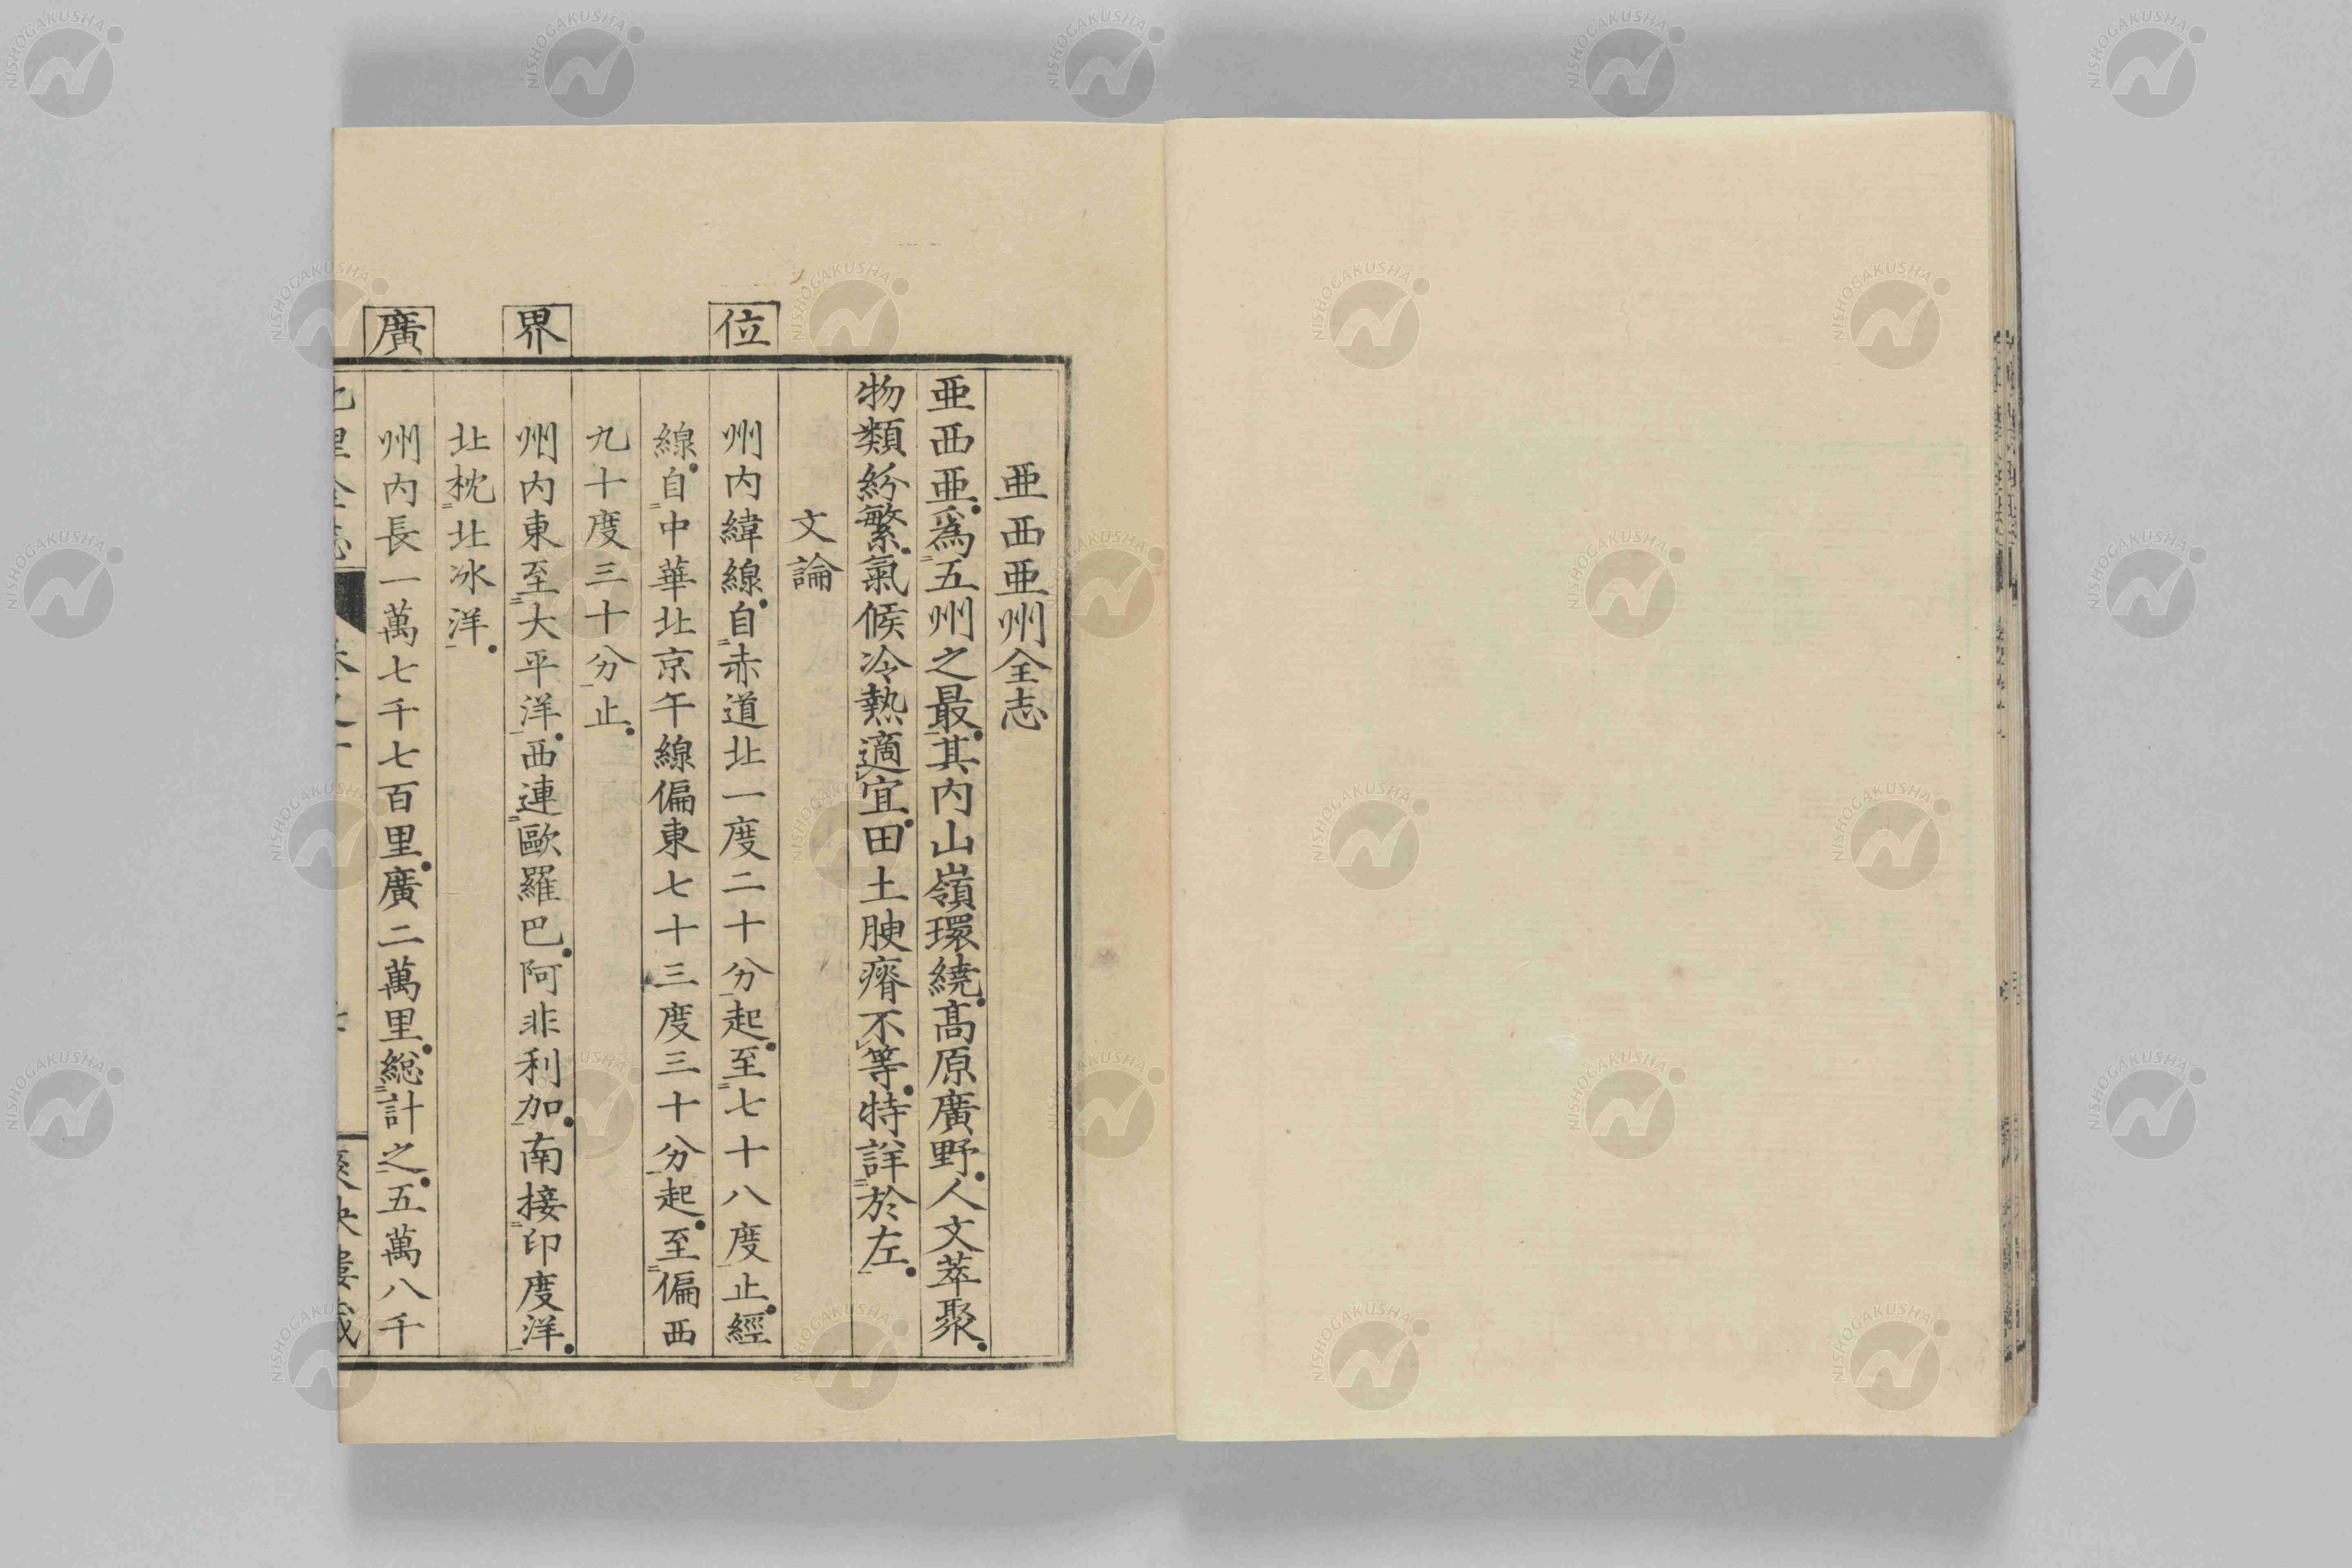 亜西亜州全志
亜西亜.為五州之最.其内山嶺環繞.髙原廣野.人文萃聚.
物類紛繁.氣候冷熱適宜.田土腴瘠不等.特詳於左.
文論
位
州内緯線.自赤道北一度二十分起.至七十八度止.經
線.自中華北京午線偏東七十三度三十分起.至偏西
九十度三十分止.
界
州内東至大平洋.西連歐羅巴.阿非利加.南接印度洋.
北枕北冰洋.
廣
州内長一萬七千七百里.廣二萬里.総計之.五萬八千
NISHOGAKUSHA